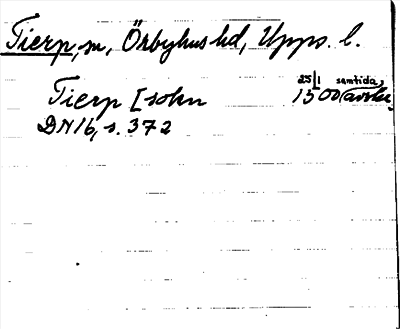 Tierp, sn, Örbyhus hd, Upps. l.
Tierp [sokn 25/1 1500 samtida avskr.
DN 16, s. 372